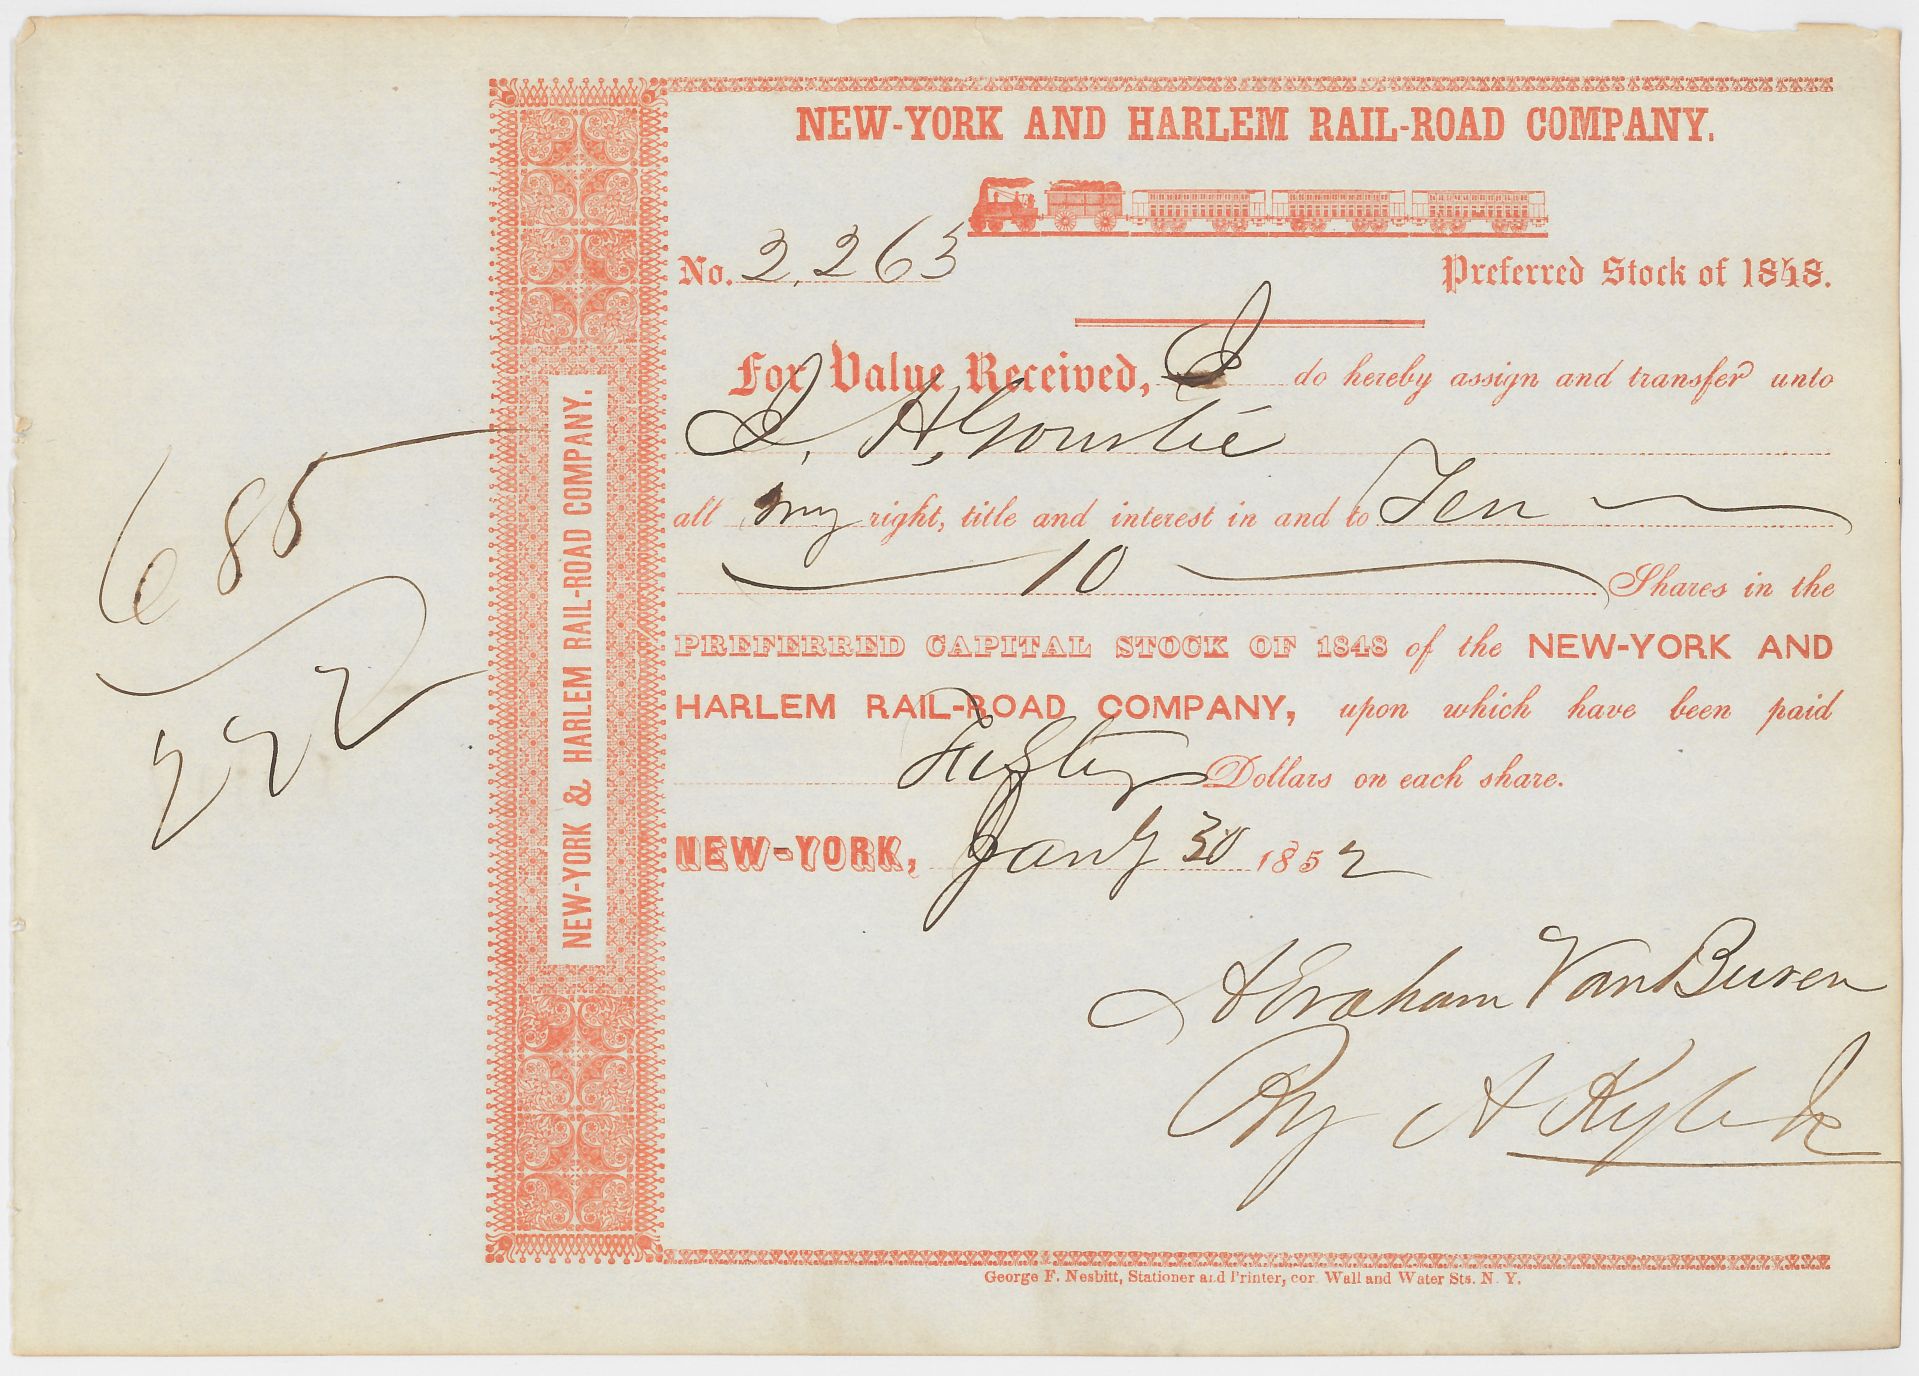 NEW-YORK AND HARLEM RAIL-ROAD COMPANY.
No. 2,263
Preferred Stock of 1848.
For Value Received, I do hereby assign and transfer unto
all my right, title and interest in and to Ten
10 Shares in the
PREFERRED CAPITAL STOCK OF 1848 of the NEW-YORK AND
HARLEM RAIL-ROAD COMPANY, upon which have been paid
Fifty Dollars on each share.
NEW-YORK, Jany 30 1852
Abraham Van Buren
By A
George F. Nesbitt, Stationer and Printer, cor. Wall and Water Sts. N. Y.
NEW-YORK & HARLEM RAIL-ROAD COMPANY.
685
222